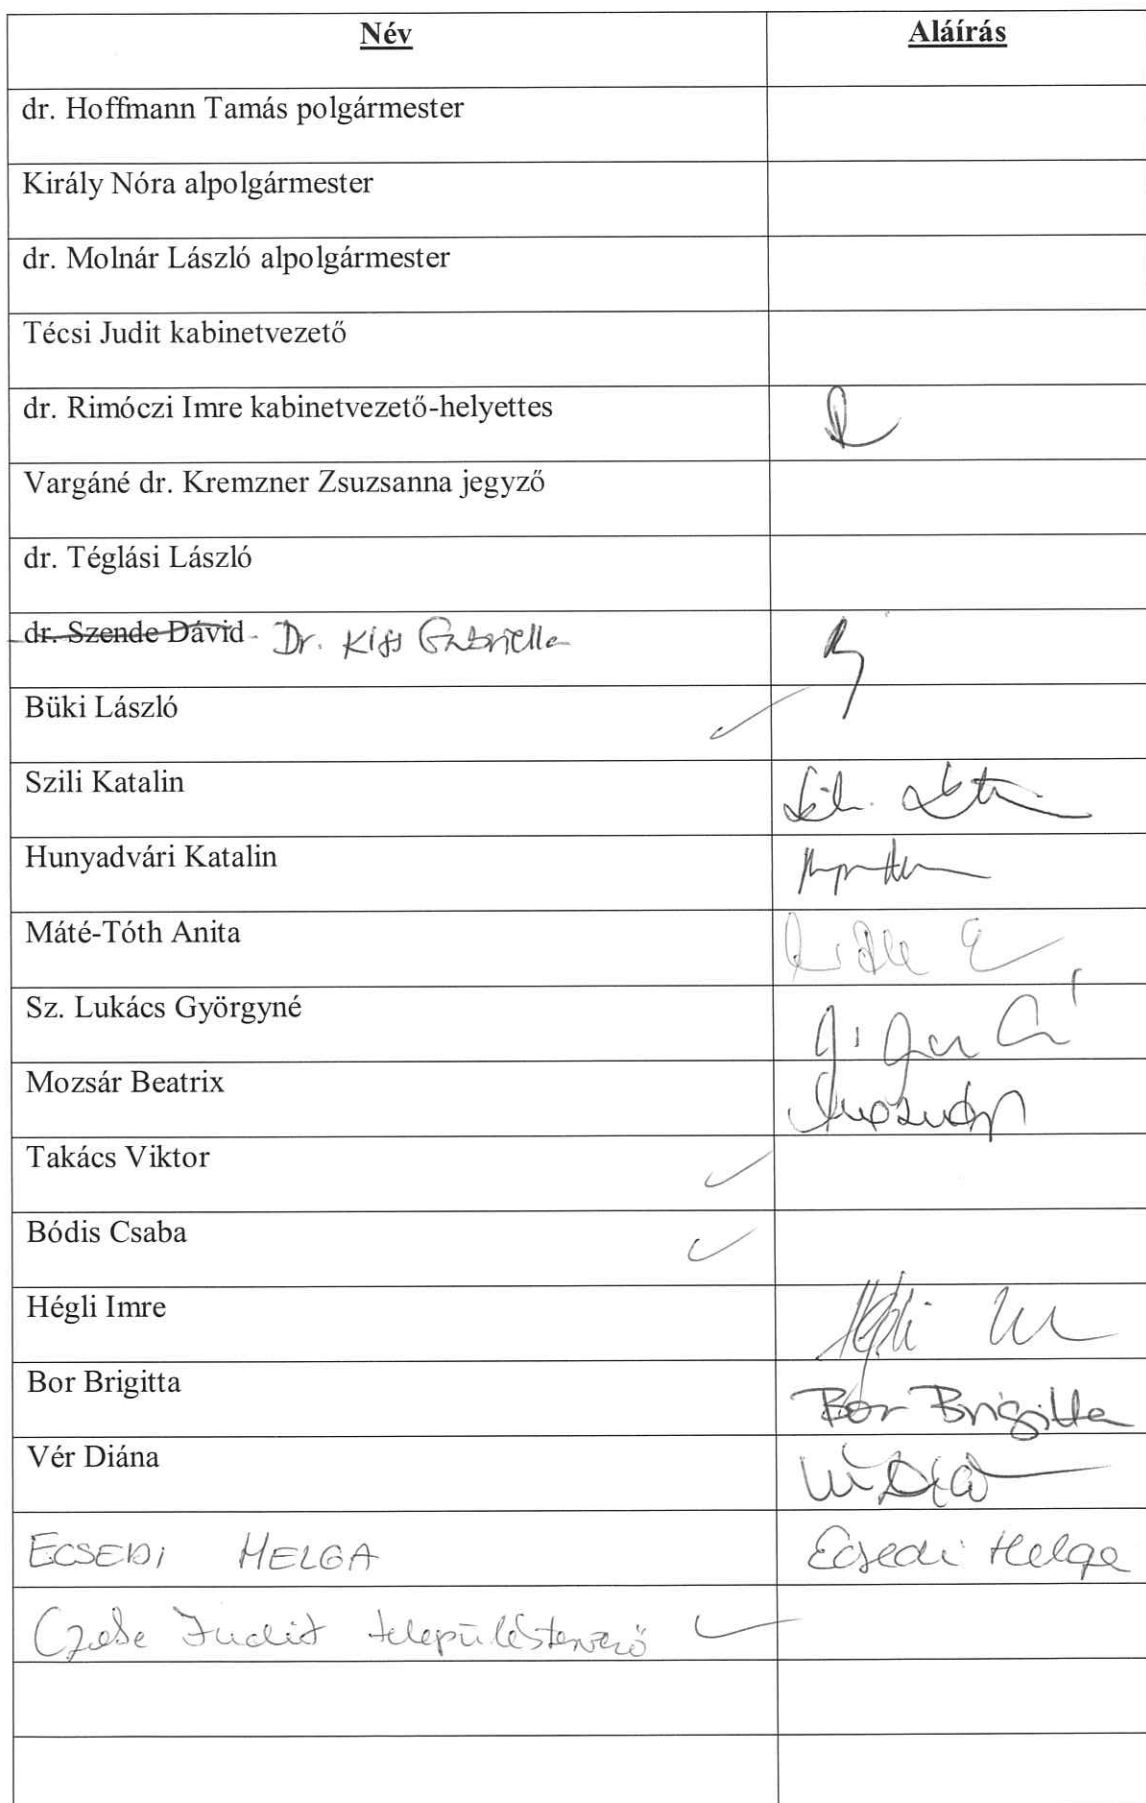 Név Aláírás
dr. Hoffmann Tamás polgármester
Király Nóra alpolgármester
dr. Molnár László alpolgármester
Técsi Judit kabinetvezető
dr. Rimóczi Imre kabinetvezető-helyettes
Vargáné dr. Kremzner Zsuzsanna jegyző
dr. Téglási László
dr. Szende Dávid Dr. Kiss Gabriella
Büki László
Szili Katalin
Hunyadvári Katalin
Máté-Tóth Anita
Sz. Lukács Györgyné
Mozsár Beatrix
Takács Viktor
Bódis Csaba
Hégli Imre
Bor Brigitta Bor Brigitta
Vér Diána
ECSEDI HELGA Ecsedi Helga
Czebe Judit településtervező